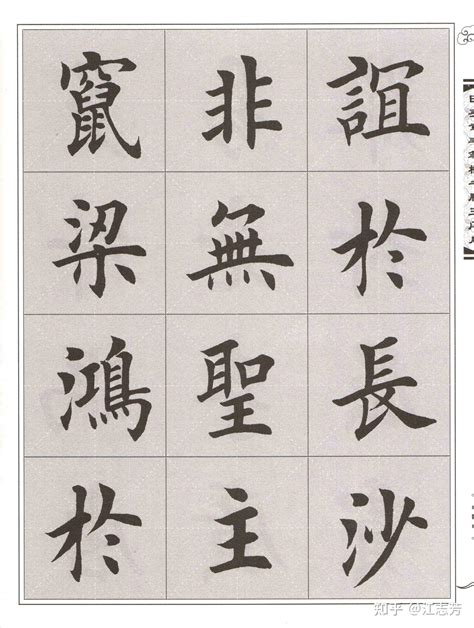 誼於長沙
非無聖主
竄梁鴻於
知乎 @江志芳